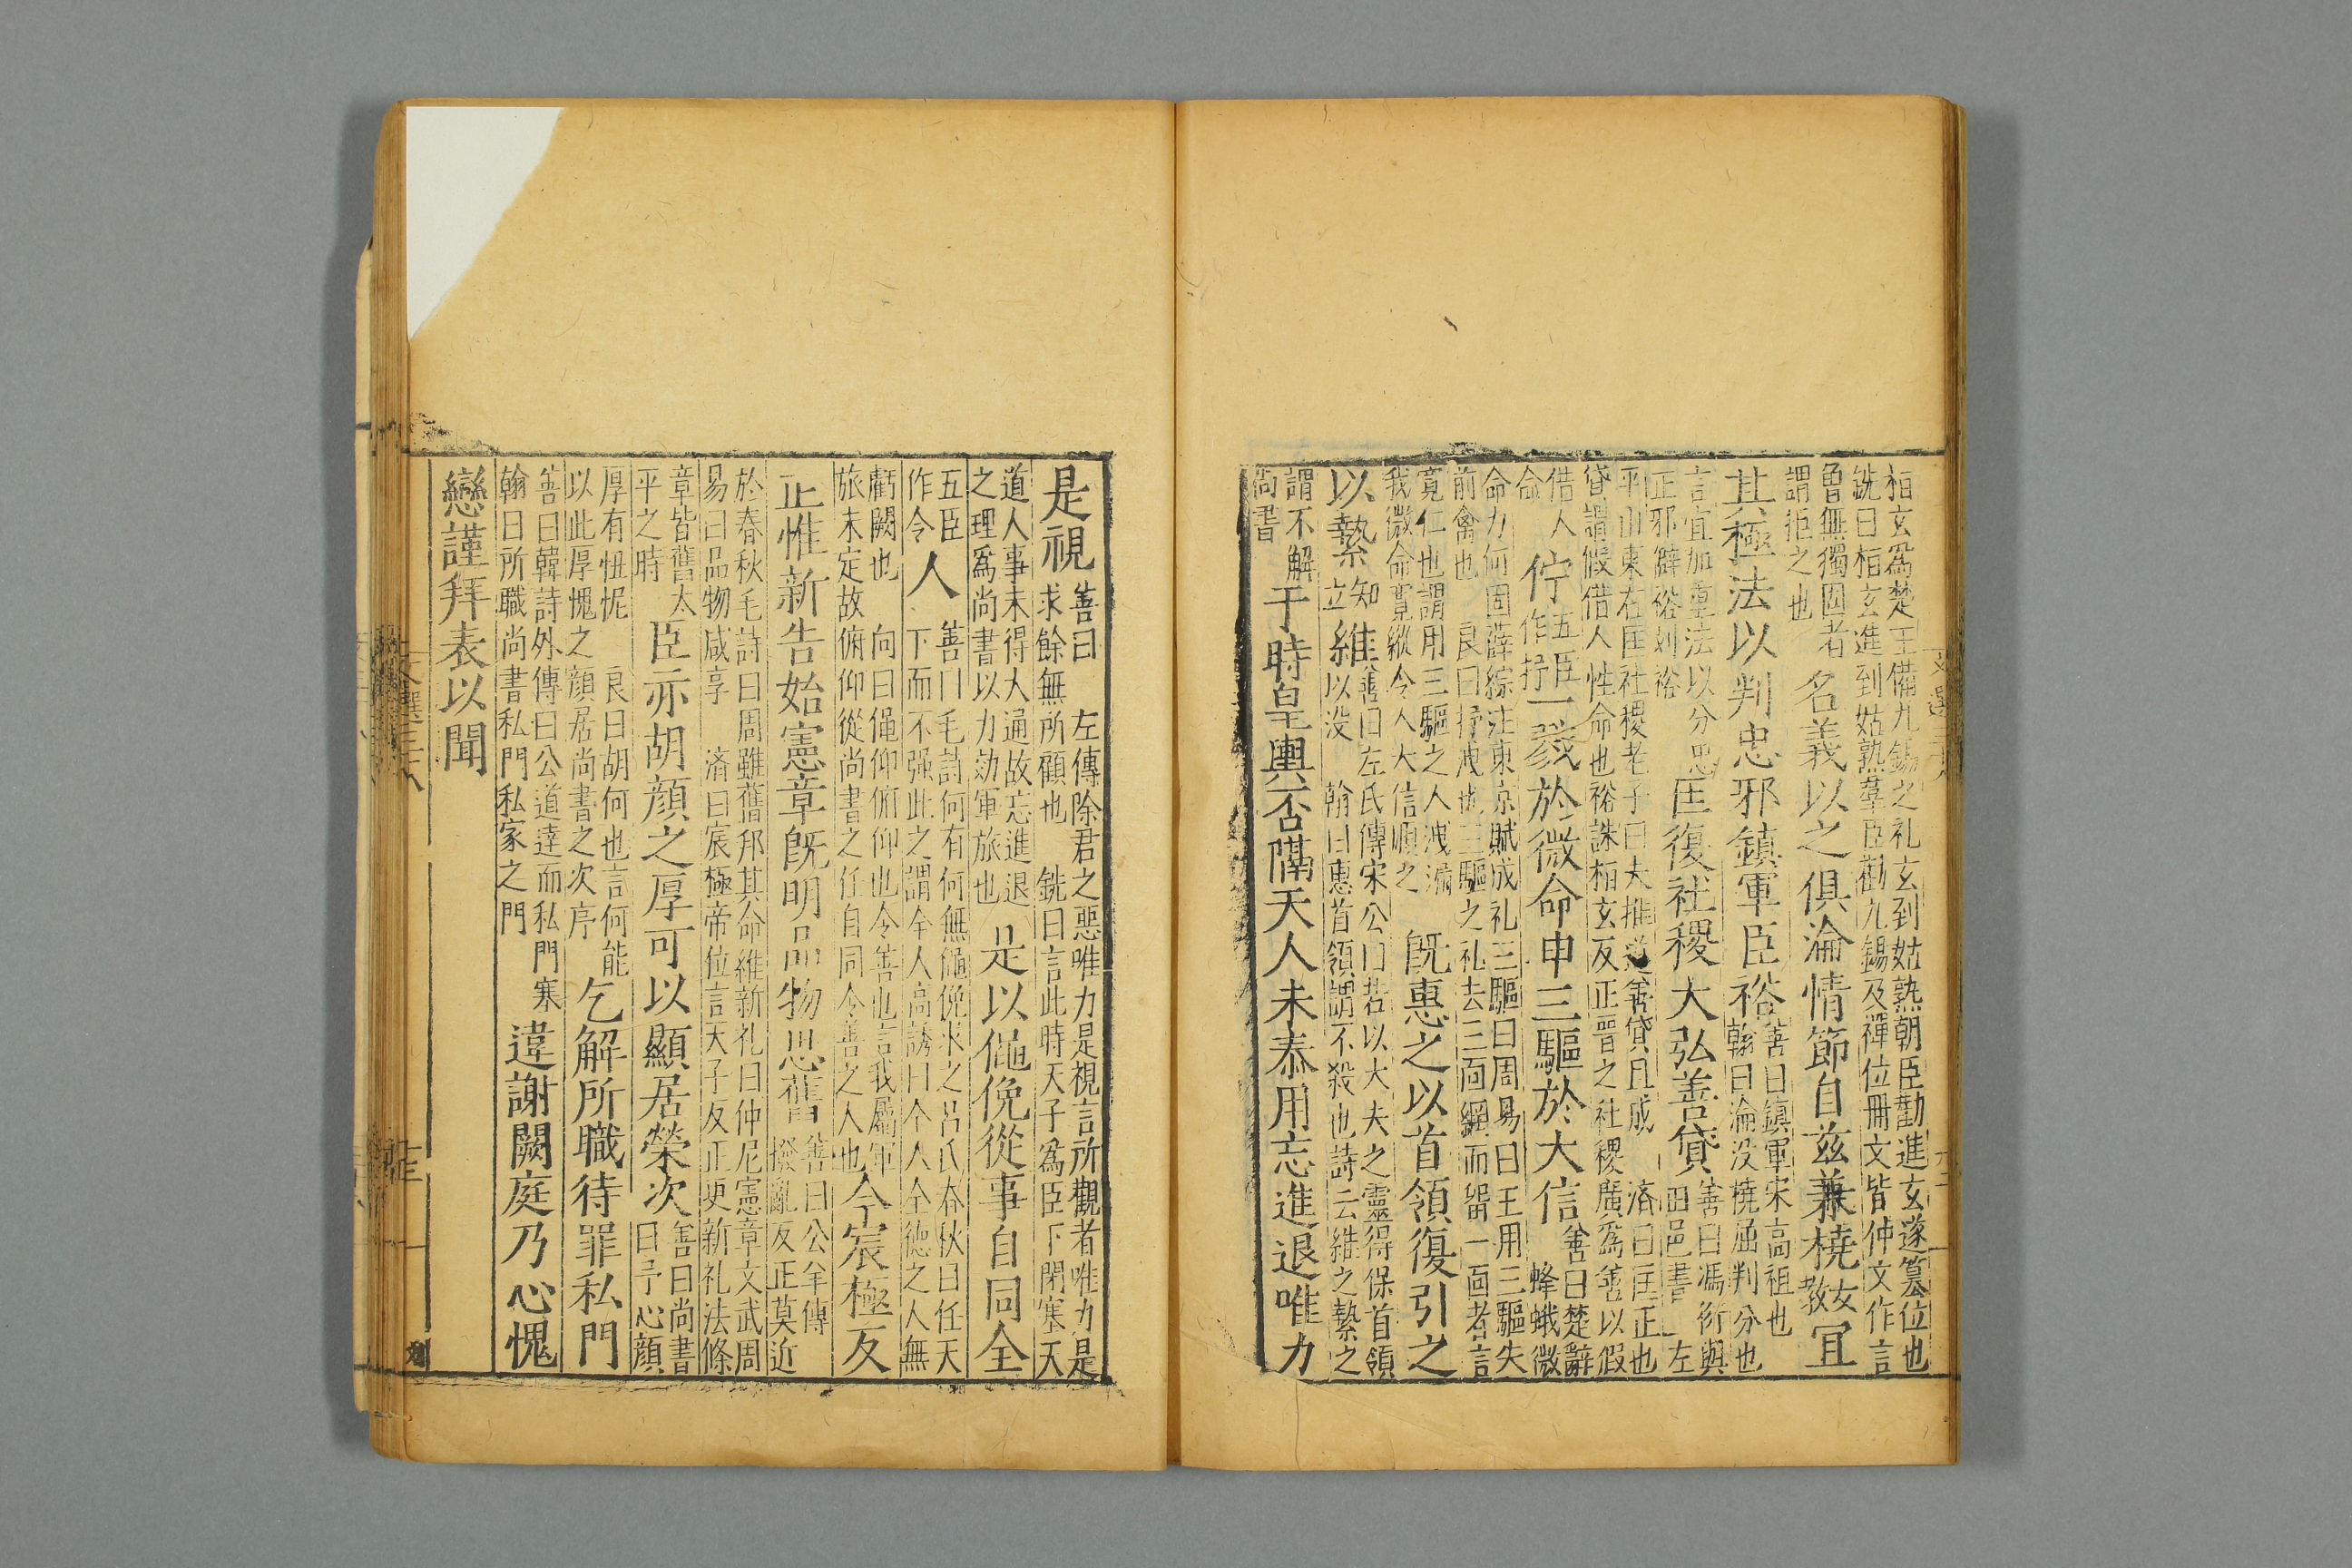 桓玄爲楚王備九錫之礼玄到姑熟朝臣勸進玄遂篡位也
銑曰桓玄進到姑熟羣臣勸九錫及禪位冊文皆仲文作言
魯無獨固者
謂拒之也
名義以之俱淪情節自茲兼撓女教宜
其極法以判忠邪鎮軍臣裕
善曰鎮軍宋高祖也
翰曰淪没撓屈判分也
言宜加重法以分忠
正邪僻裕劉裕
匡復社稷大弘善貸
善曰馮衍與
田邑書
左
平山東在匡社稷老子曰夫推道善貸且成 濟曰匡正也
貸謂假借人性命也裕誅桓玄反正晋之社稷廣爲善以假
借人
命
佇
五臣
作抒
一戮於微命申三驅於大信
善曰楚辭
蜂蛾微
命力何固薛綜注東京賦成礼三驅曰周易曰王用三驅失
前禽也 良曰抒洩也三驅之礼去三面綱而留一面者言
寛仁也謂用三驅之人洩漏
我微命寬縱令人大信順之
旣惠之以首領復引之
以縶
知
立
維
善曰左氏傳宋公曰若以大夫之靈得保首領
以没 翰曰惠首領謂不殺也詩云維之縶之
謂不解
尚書
于時皇輿否隔天人未泰用忘進退唯力
是視
善曰 左傳除君之惡唯力是視言所觀者唯力是
求餘無所顧也 銑曰言此時天子爲臣下閉塞天
道人事未得大通故忘進退
之理爲尚書以力効軍旅也
是以僶俛從事自同全
五臣
作令
人
善曰毛詩何有何無僶俛求之吕氏春秋曰任天
下而不强此之謂全人高誘曰全人全德之人無
虧闕也 向曰僶仰俯仰也令善也言我屬軍
旅未定故俯仰從尚書之任自同令善之人也
今宸極反
正惟新告始憲章旣明品物思舊
善曰公羊傳
撥亂反正莫近
於春秋毛詩曰周雖舊邦其命維新礼曰仲尼憲章文武周
易曰品物咸享 濟曰宸極帝位言天子反正更新礼法條
章皆舊太
平之時
臣亦胡顔之厚可以顯居榮次
善曰尚書
曰予心顔
厚有忸怩 良曰胡何也言何能
以此厚愧之顔居尚書之次序
乞解所職待罪私門
善曰韓詩外傳曰公道達而私門寒
翰曰所職尚書私門私家之門
違謝闕庭乃心愧
戀謹拜表以聞